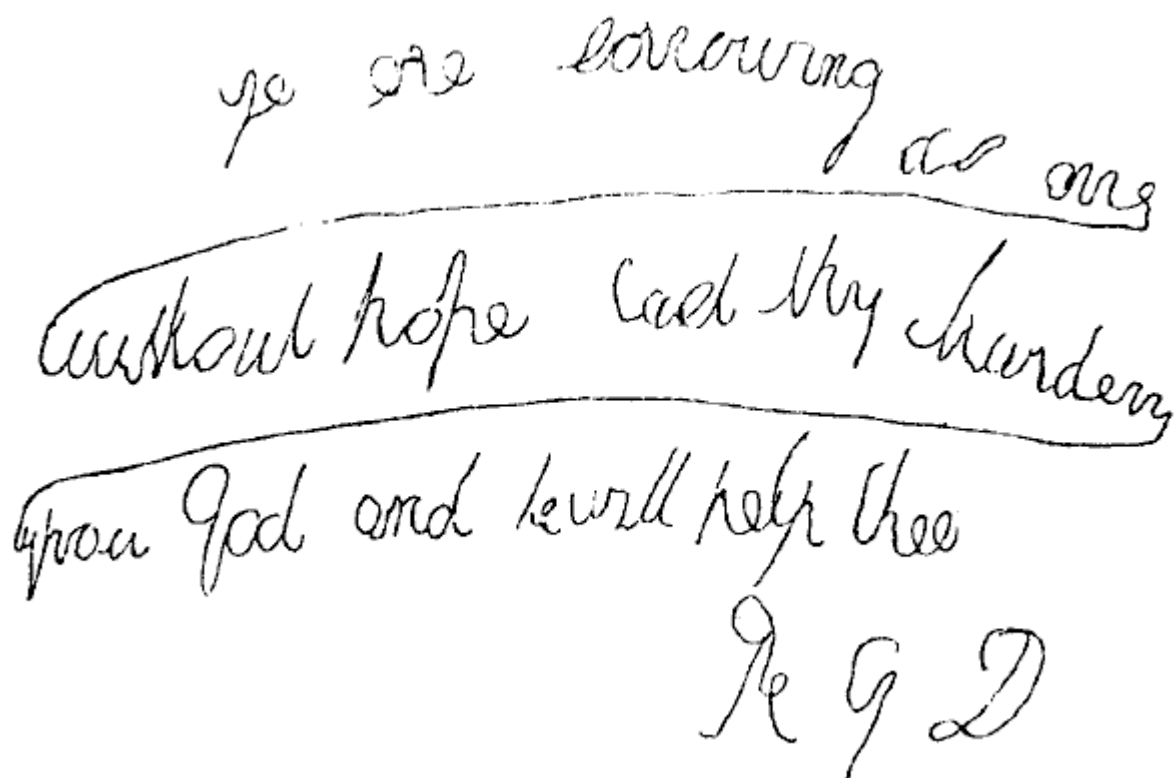 ye are sorrowing
as one
without hope Cast thy burden
upon God and he will help thee
R G D